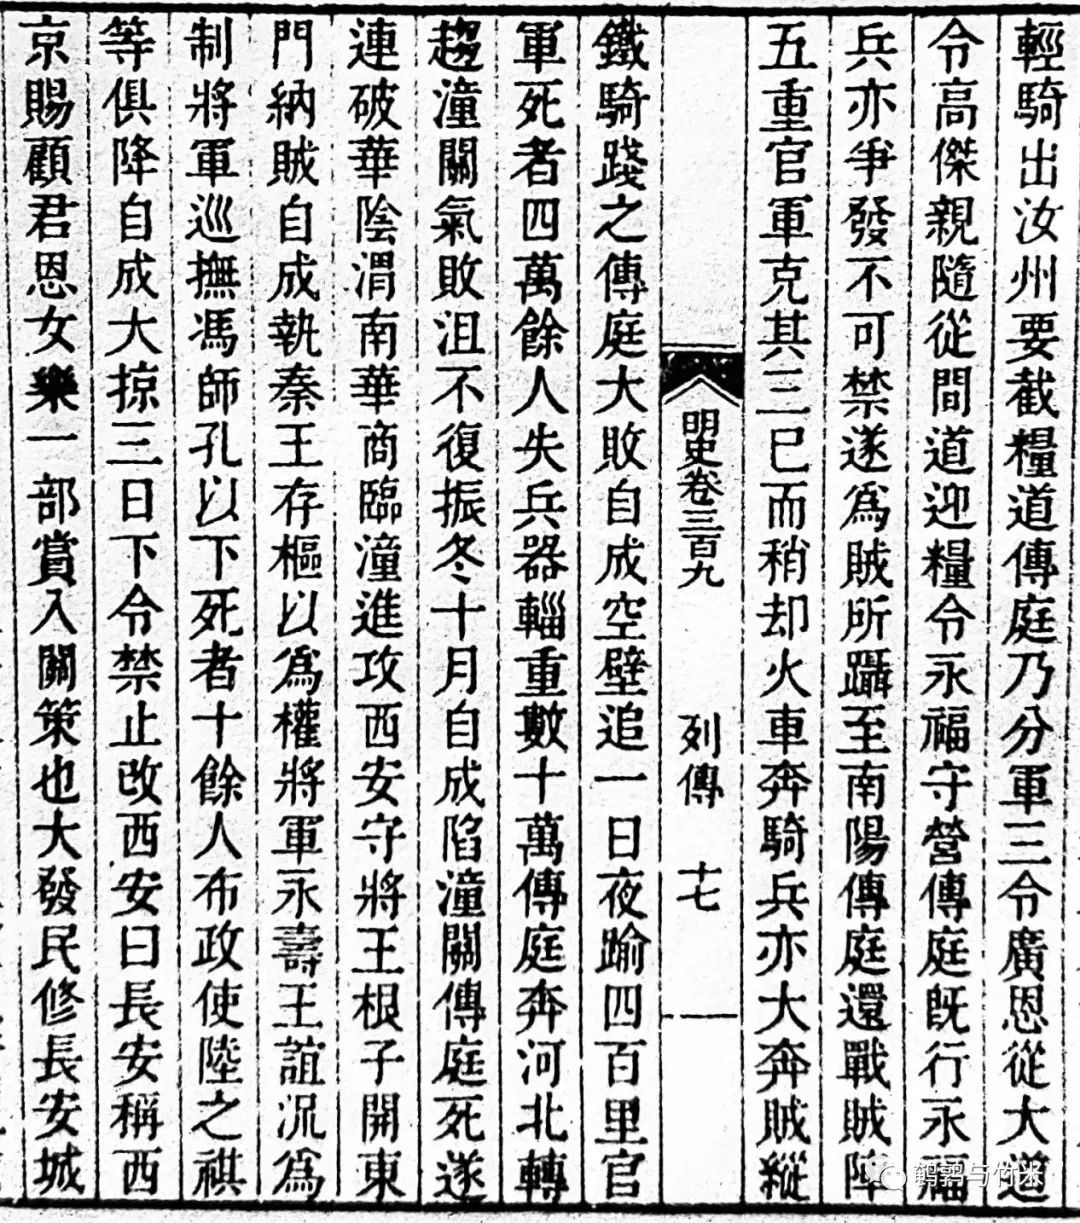 輕騎出汝州要截糧道傳庭乃分軍三令廣恩從大道
令高傑親隨從間道迎糧令永福守營傳庭既行永福
兵亦爭發不可禁遂爲賊所躡至南陽傳庭還戰賊陣
五重官軍克其三已而稍却火車奔騎兵亦大奔賊縱
明史卷三百九 列傳 十七
鐵騎踐之傳庭大敗自成空壁追一日夜踰四百里官
軍死者四萬餘人失兵器輜重數十萬傳庭奔河北轉
趨潼關氣敗沮不復振冬十月自成陷潼關傳庭死遂
連破華陰渭南華商臨潼進攻西安守將王根子開東
門納賊自成執秦王存樞以爲權將軍永壽王誼況爲
制將軍巡撫馮師孔以下死者十餘人布政使陸之祺
等俱降自成大掠三日下令禁止改西安曰長安稱西
京賜顧君恩女樂一部賞入關策也大發民修長安城
鹌鹑与竹米